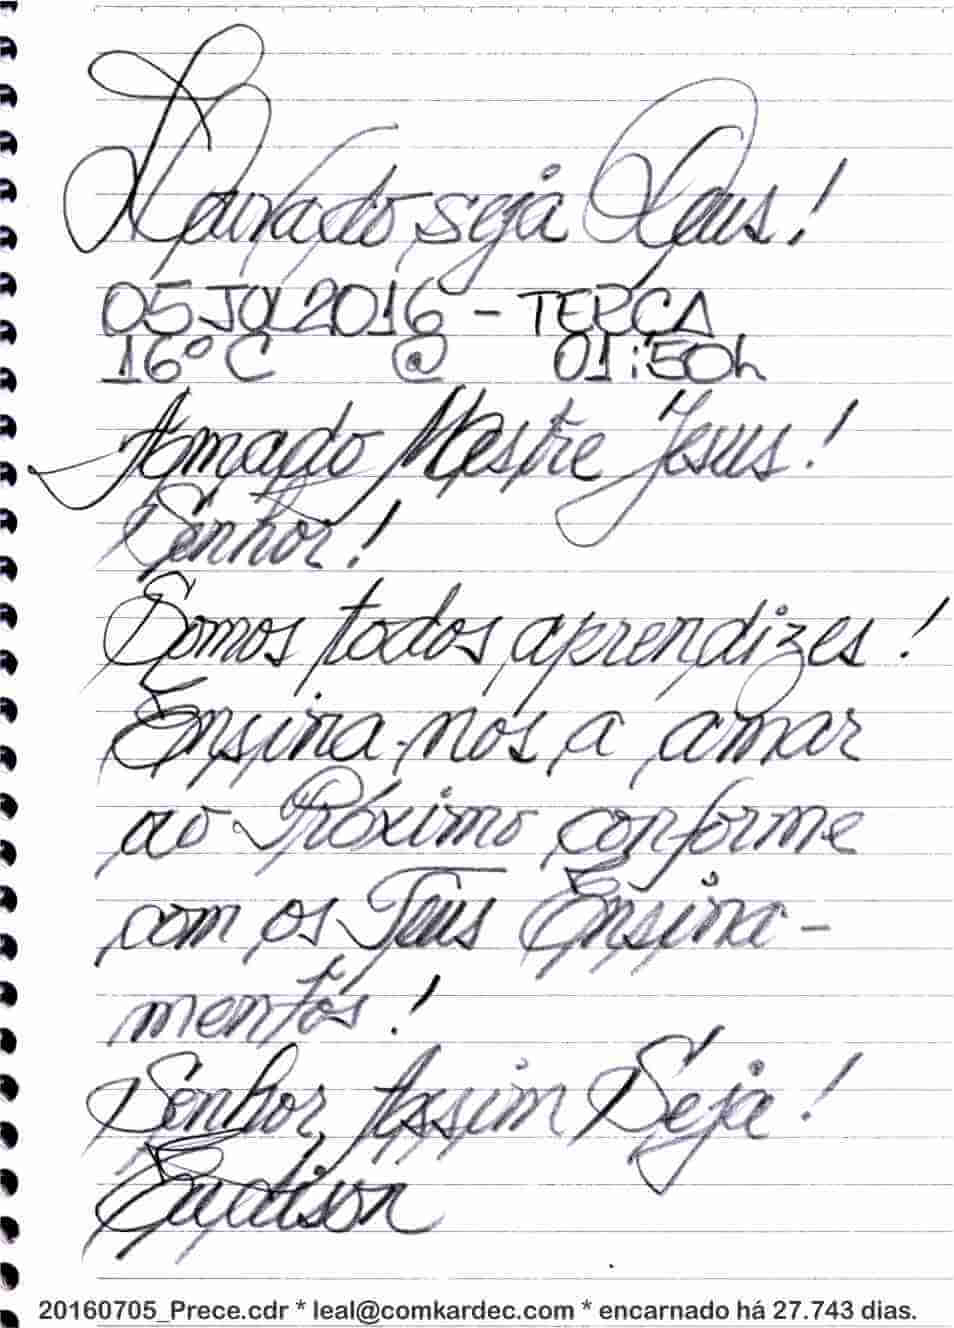 Louvado seja Deus!
05 JUL 2016 - TERÇA
16°C @ 01:50h
Amado Mestre Jesus!
Senhor!
Somos todos aprendizes!
Ensina-nos a amar
ao Próximo conforme
com os Teus Ensina-
mentos!
Senhor, Assim Seja!
Eudison
20160705_Prece.cdr * leal@comkardec.com * encarnado há 27.743 dias.